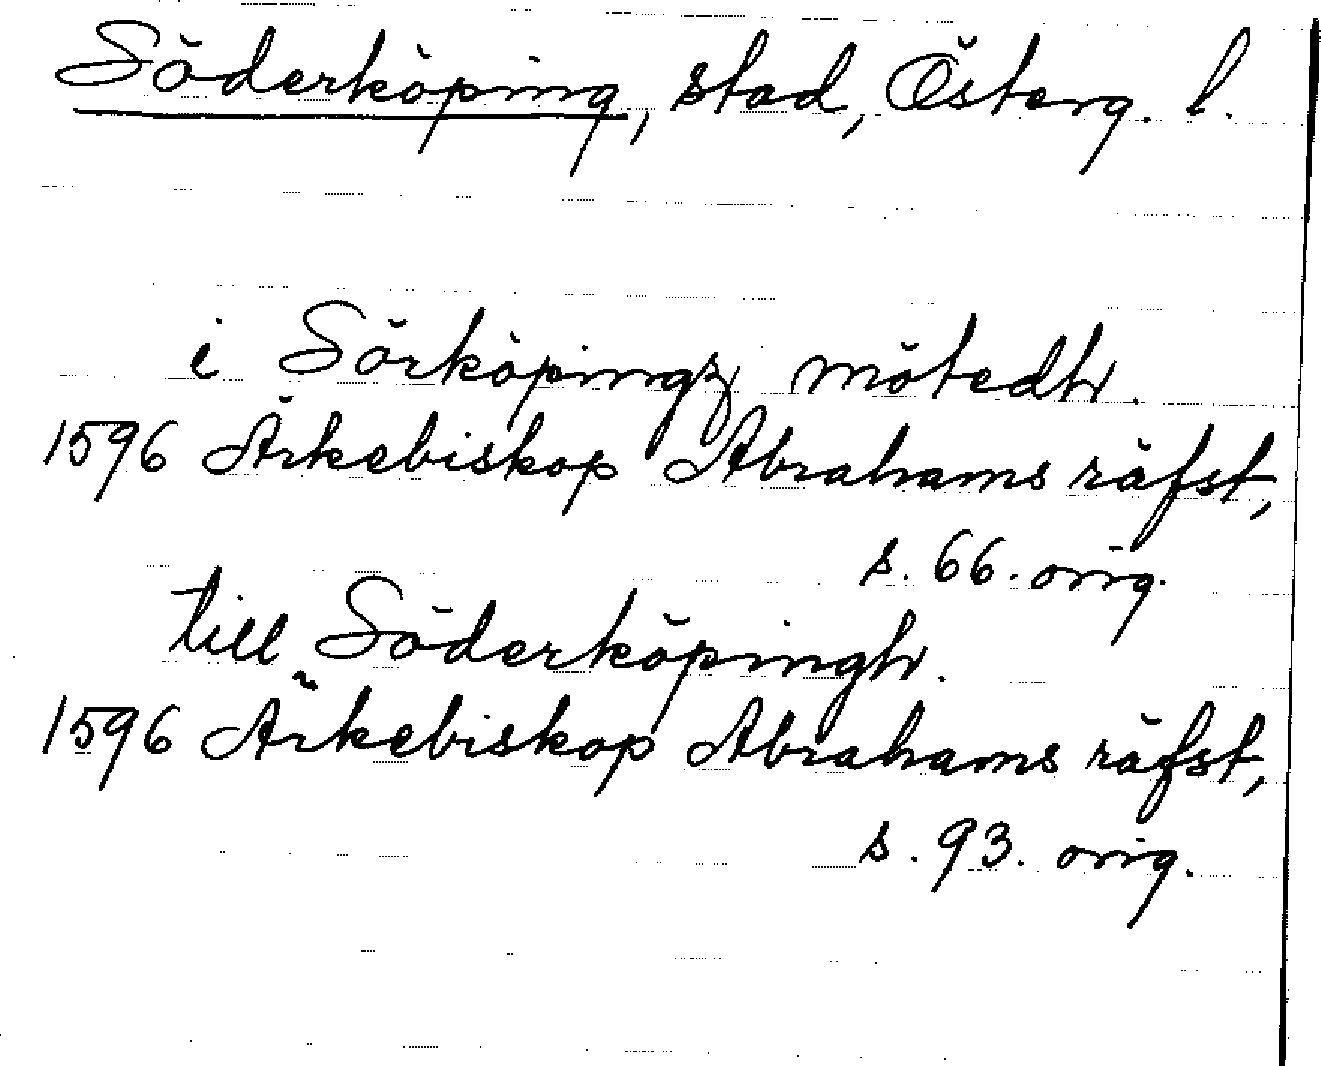 Söderköping, stad, Österg. l.
i Sörköpingz mötedh.
1596 Ärkebiskop Abrahams räfst,
s. 66. orig.
till Söderköpingh.
1596 Ärkebiskop Abrahams räfst,
s. 93. orig.